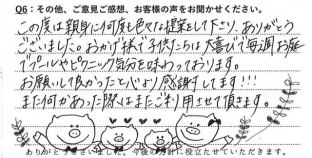 Q6：その他、ご意見ご感想、お客様の声をお聞かせください。
この度は親身に何度も色々な提案をして下さり、ありがとう
ございました。おかげ様で子供たちは大喜びで毎週お庭
でプールやピクニック気分を味わっております。
お願いして良かったと心より感謝してます!!!
また何かあった際はまたご利用させて頂きます。
ありがとうございました。今後の参考に役立たせていただきます。